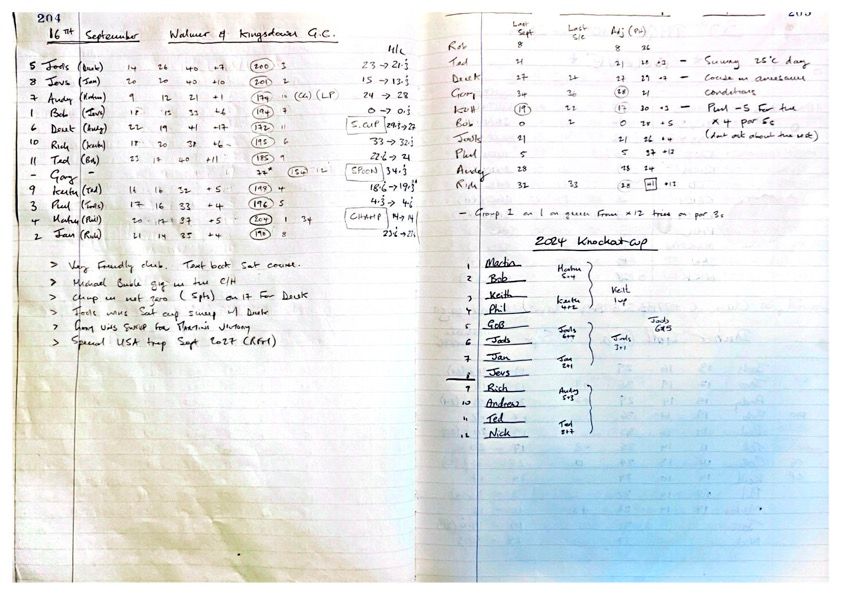 204
16TH September Walmer & Kingsdown G.C.
H/c
5 Jools (Derek) 14 26 40 +7 200 3 23 → 21.5
8 Jevs (Jan) 20 20 40 +10 201 2 15 → 13.5
7 Andy 9 12 21 +1 174 10 (CG) (LP) 24 → 28
1 Bob (Jevs) 18 15 33 +6 194 7 0 → 0.5
6 Derek (Andy) 22 19 41 +17 172 11 S.CUP → 27
10 Rich (Keith) 18 20 38 +6 195 6 33 → 32.5
11 Ted (Bob) 23 17 40 +11 185 9 22.6 → 21
- Gary - 27* 154 12 SPOON 34.5
9 Keith (Ted) 16 16 32 +5 198 4 18.6 → 19.5
3 Phil (Jools) 17 16 33 +4 196 5 4.5 → 4.5
4 Martin (Phil) 20 17 37 +5 204 1 34 CHAMP 14 → 14
2 Jan (Rich) 21 14 35 +4 190 8
> Very friendly club. Text back Sat course.
> Michael Buble gig in the C/H
> Chip in net zero (5pts) on 17 For Derek
> Jools wins Sat cup sweep w/ Derek
> Gary wins sweep for Martin's victory
> Special USA trip Sept 2027 (RFM)
205
Last Sept Last S/c Adj (Ph)
Rob 8 8 26
Ted 21 21 28 +2 - Sunny 25°C day
Derek 27 26 27 29 +7 - Course in awesome
Gary 34 30 28 21 conditions
Keith 19 22 17 30 +3 - Phil -5 For the
Bob 0 2 0 28 +5 x 4 par 5s
Jools 21 21 26 +4 (dont ask about the rest)
Phil 5 5 37 +12
Andy 28 28 24
Rich 32 33 28 41 +12
- Group 1 on 1 on green from x12 trees on par 3s
2024 Knockout cup
1 Martin
Martin 5+4
2 Bob
Keith 1up
3 Keith
Keith 4+2
4 Phil
5 GOB
Jools 6&5
Jools 6+4
6 Jools
Jools 3+1
7 Jan
Jan 2+1
8 Jevs
9 Rich
Andy 5+3
10 Andrew
11 Ted
Ted 8+7
12 Nick